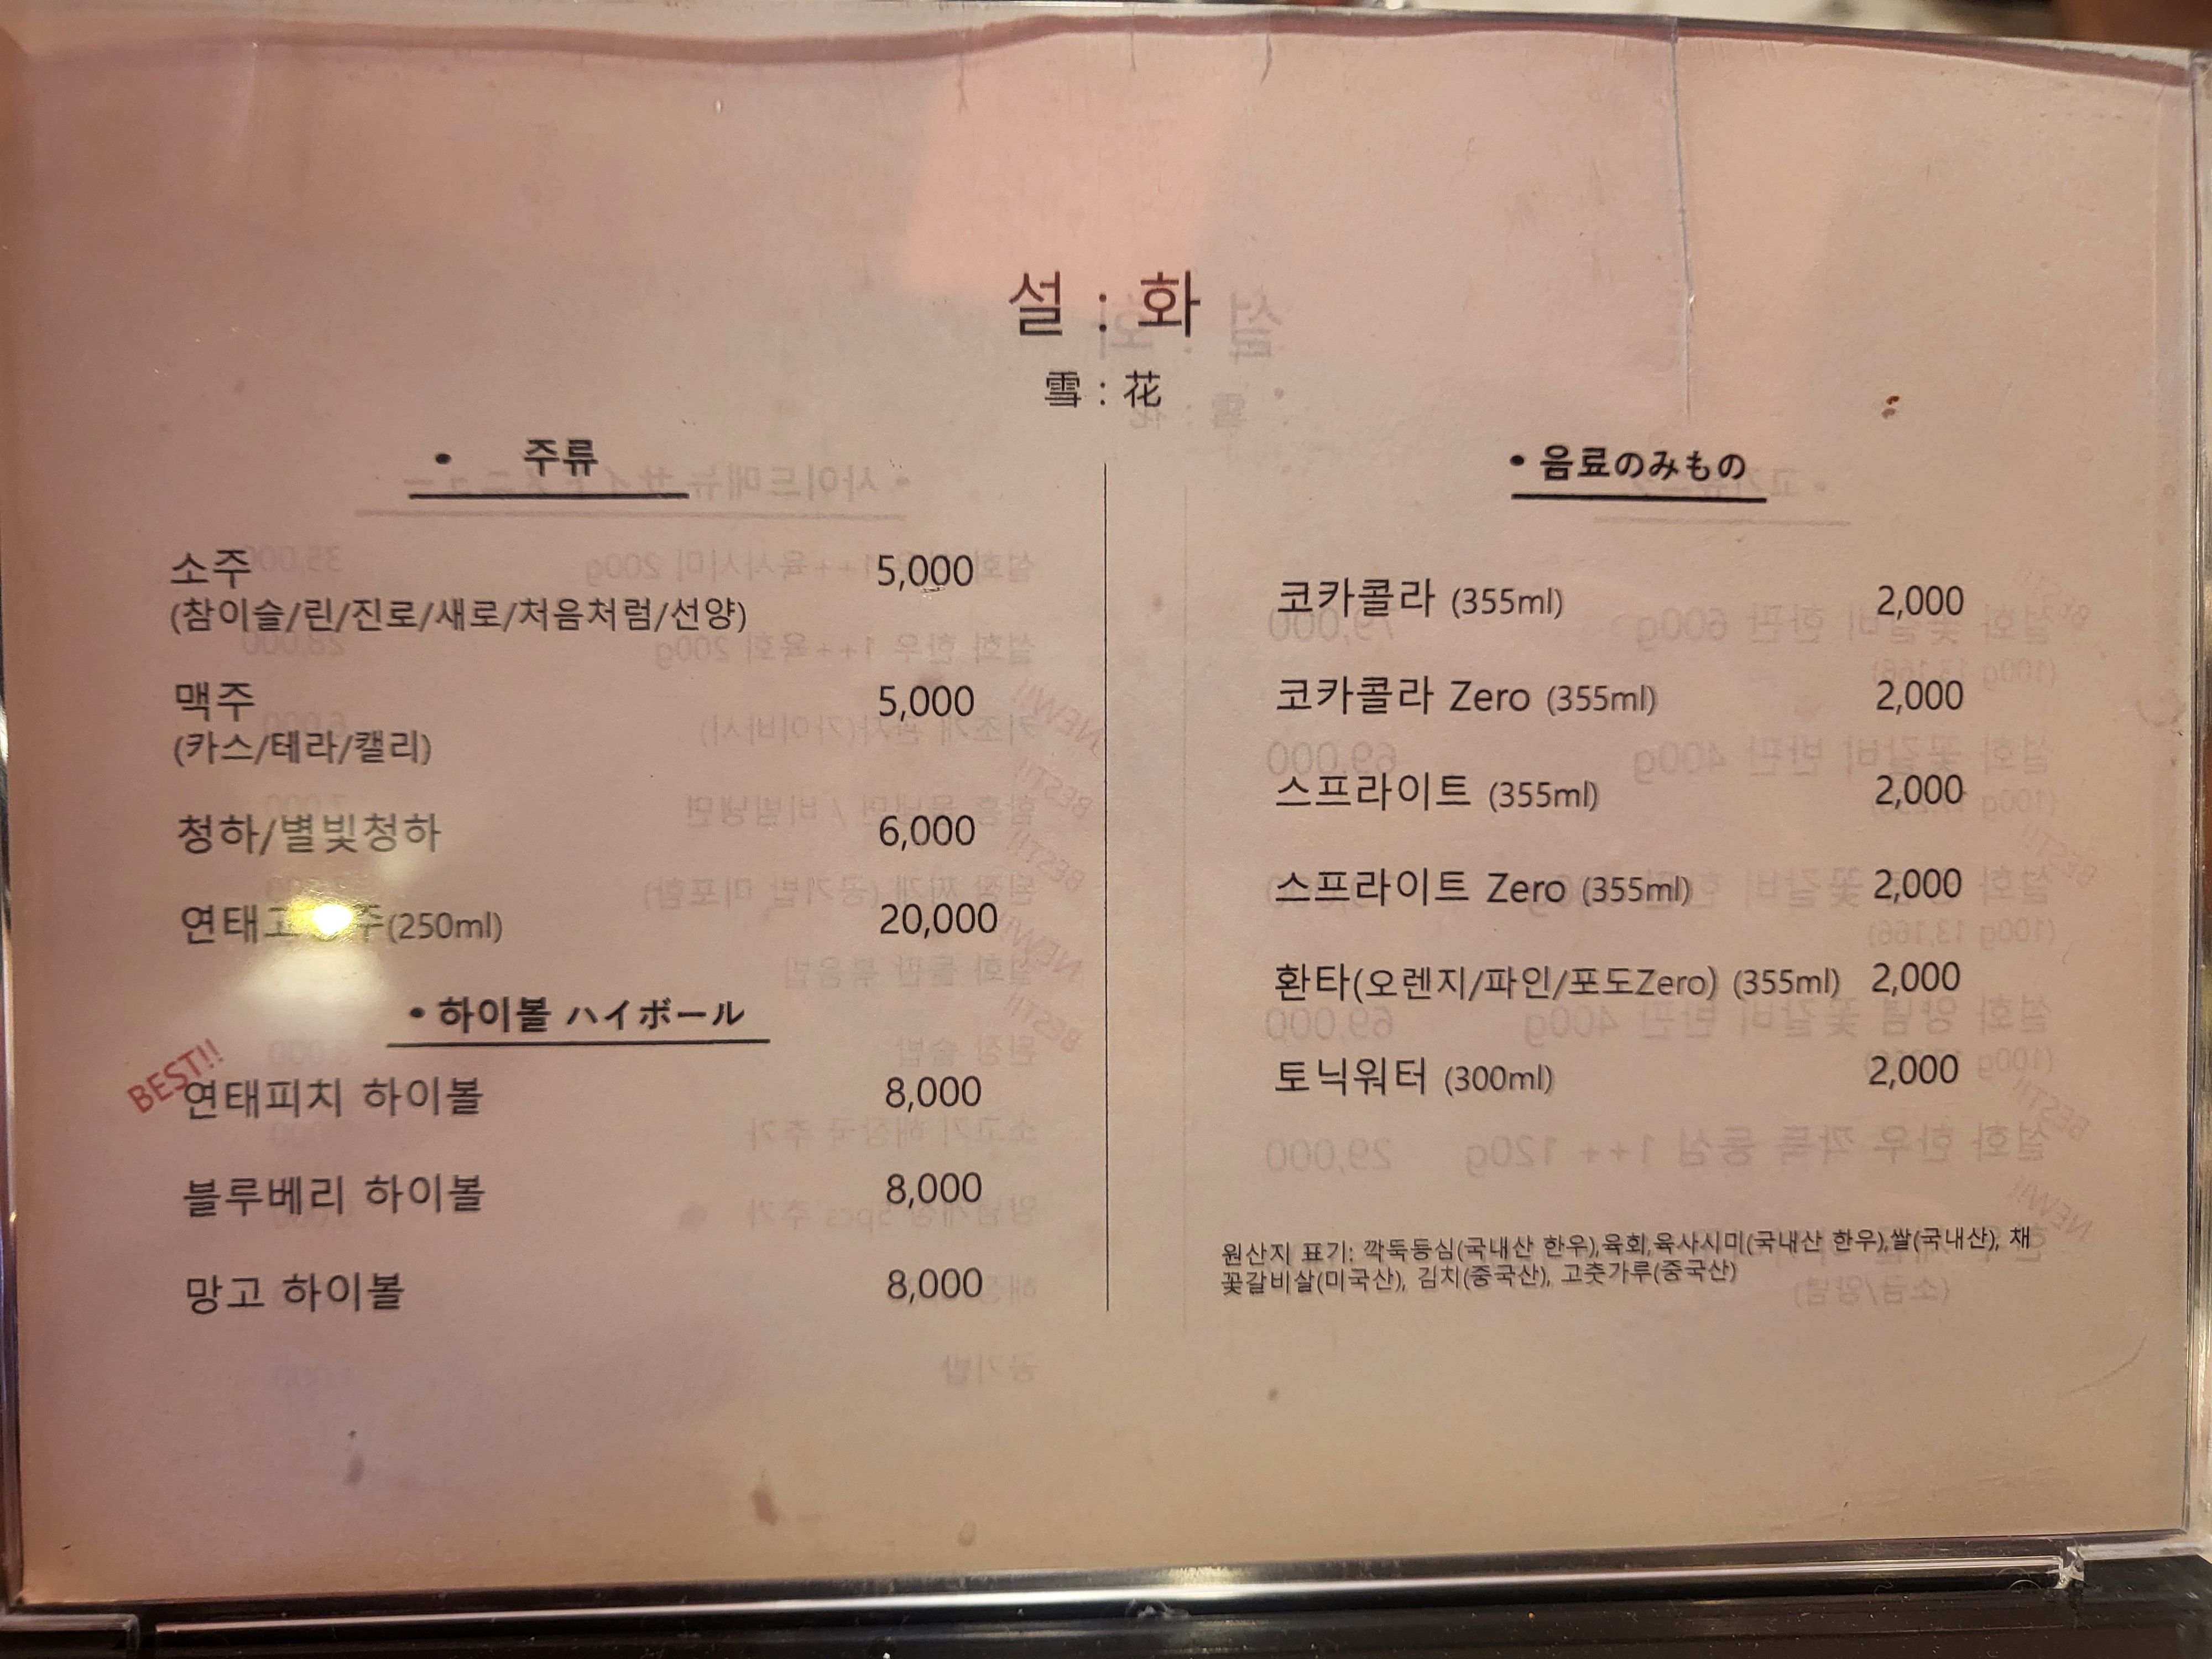 설 : 화
雪 : 花
• 주류
소주 5,000
(참이슬/린/진로/새로/처음처럼/선양)
맥주 5,000
(카스/테라/캘리)
청하/별빛청하 6,000
(250ml) 20,000
• 하이볼 ハイボール
BEST!!
연태피치 하이볼 8,000
블루베리 하이볼 8,000
망고 하이볼 8,000
• 음료のみもの
코카콜라 (355ml) 2,000
코카콜라 Zero (355ml) 2,000
스프라이트 (355ml) 2,000
스프라이트 Zero (355ml) 2,000
환타(오렌지/파인/포도Zero) (355ml) 2,000
토닉워터 (300ml) 2,000
원산지 표기: 깍둑등심(국내산 한우),육회,육사시미(국내산 한우),쌀(국내산), 채
꽃갈비살(미국산), 김치(중국산), 고춧가루(중국산)